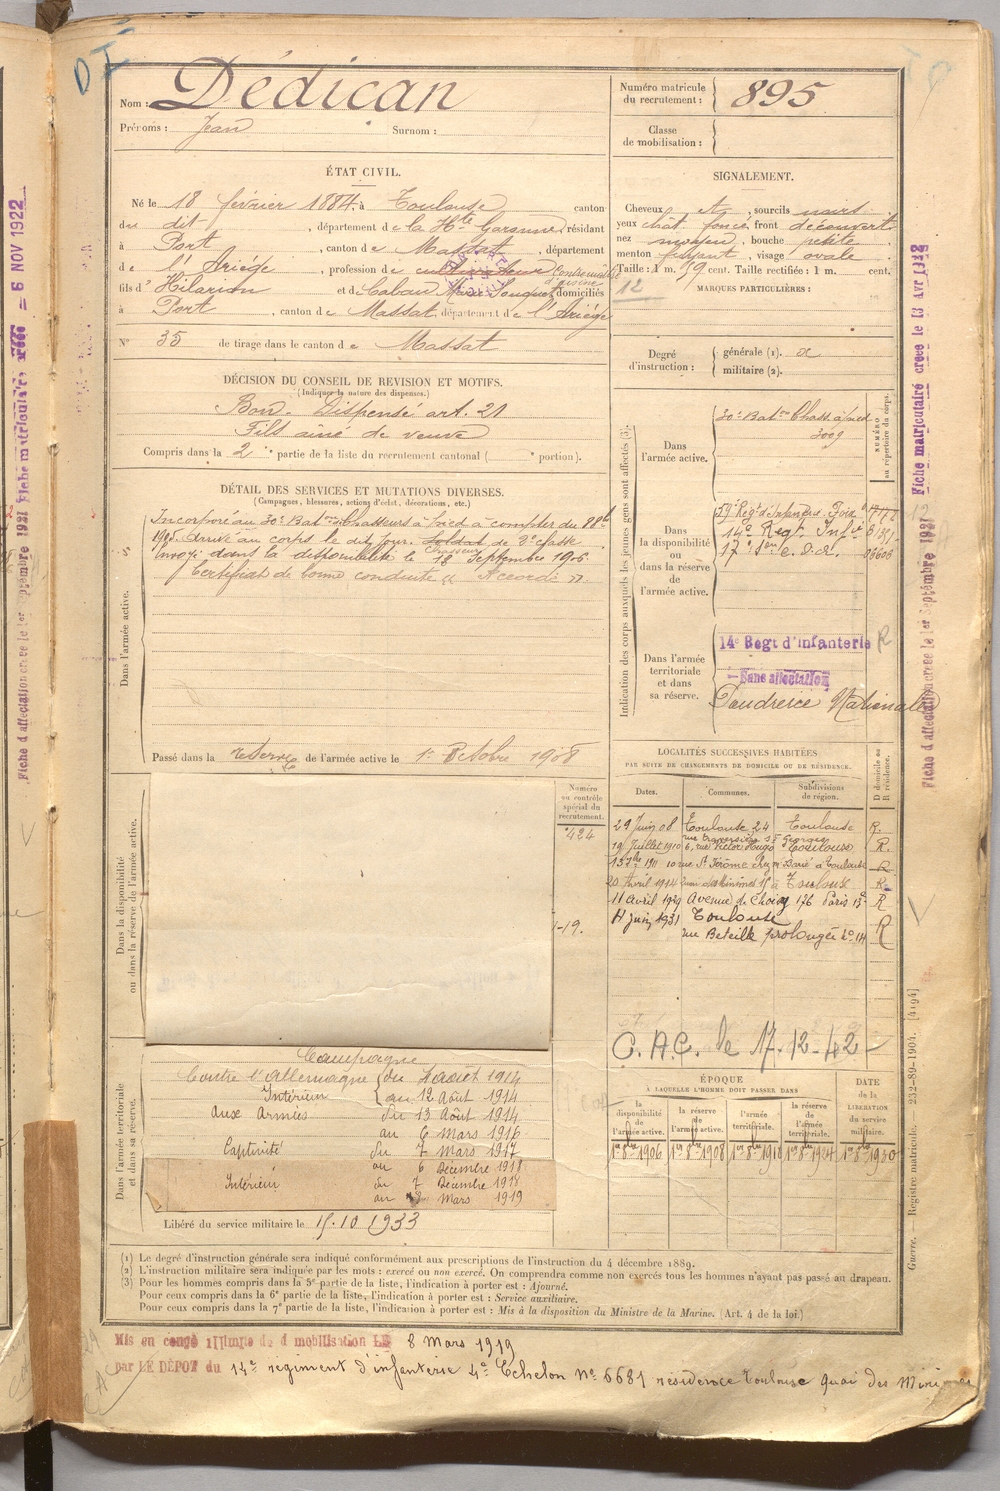 Nom : Dédican
Prénoms : Jean Surnom :
Numéro matricule du recrutement : 895
Classe de mobilisation :
ÉTAT CIVIL.
Né le 18 février 1884, à Toulouse canton
du dit, département de la Hte Garonne, résidant
à Port, canton de Massat, département
de l'Ariège, profession de cultivateur Contremaître d'usine
fils d' Hilarion et de Caban Marie domiciliés
à Port, canton de Massat, département de l'Ariège
N° 35 de tirage dans le canton de Massat
SIGNALEMENT.
Cheveux et, sourcils noirs
yeux chât. foncé, front découvert
nez moyen, bouche petite
menton fuyant, visage ovale
Taille : 1 m. 59 cent. Taille rectifiée : 1 m. cent.
12
MARQUES PARTICULIÈRES :
Degré d'instruction : générale (1).
militaire (2).
DÉCISION DU CONSEIL DE REVISION ET MOTIFS.
(Indiquer la nature des dispenses.)
Bon. Dispensé art. 21
Fils aîné de veuve
Compris dans la 2e partie de la liste du recrutement cantonal ( e portion).
DÉTAIL DES SERVICES ET MUTATIONS DIVERSES.
(Campagnes, blessures, actions d'éclat, décorations, etc.)
Dans l'armée active.
Incorporé au 30e Baton de Chasseurs à pied à compter du 8 8bre
1905. Arrivé au corps le dit jour. Soldat de 2e classe
Chasseur
Envoyé dans la disponibilité le 18 Septembre 1906.
Certificat de bonne conduite « Accordé ».
Passé dans la réserve de l'armée active le 1er Octobre 1908
Indication des corps auxquels les jeunes gens sont affectés (3).
NUMÉRO au répertoire du corps.
Dans l'armée active.
30e Baton Chass. à pied
3009
Dans la disponibilité ou dans la réserve de l'armée active.
59e Régt d'Infanterie Foix
14e Regt Infie
17e
Dans l'armée territoriale et dans sa réserve.
14e Regt d'infanterie R
Sans affectation
Poudrerie Nationale
LOCALITÉS SUCCESSIVES HABITÉES
PAR SUITE DE CHANGEMENTS DE DOMICILE OU DE RÉSIDENCE.
Dates. Communes. Subdivisions de région. D domicile ou R résidence.
29 Juin 08 Toulouse 24 rue traversière St Georges Toulouse R.
19 Juillet 1910 6, rue Victor Hugo Toulouse R.
10 rue St Jérôme chez Toulouse R
20 Avril 1914 Quai des Minimes 15 à Toulouse R.
11 avril 1929 Avenue de Choisy 176 Paris 13e R
11 juin 1931 Toulouse
rue Beteille prolongée R
C.A.C. le 17-12-42
Dans la disponibilité ou dans la réserve de l'armée active.
Numéro au contrôle spécial du recrutement.
424
1-19.
Dans l'armée territoriale et dans sa réserve.
Campagne
Contre l'Allemagne du 4 août 1914
Intérieur au 12 Août 1914
Aux Armées du 13 Août 1914
au 6 Mars 1916
Captivité du 7 Mars 1917
au 6 Décembre 1918
Intérieur du 7 Décembre 1918
au 8 Mars 1919
Libéré du service militaire le 15.10 1933
ÉPOQUE
À LAQUELLE L'HOMME DOIT PASSER DANS
la disponibilité de l'armée active. la réserve de l'armée active. l'armée territoriale. la réserve de l'armée territoriale. DATE de la LIBÉRATION du service militaire.
1er 8bre 1906 1er 8bre 1908 1er 8bre 1918 1er 8bre 1924 1er 8bre 1930
(1) Le degré d'instruction générale sera indiqué conformément aux prescriptions de l'instruction du 4 décembre 1889.
(2) L'instruction militaire sera indiquée par les mots : exercé ou non exercé. On comprendra comme non exercés tous les hommes n'ayant pas passé au drapeau.
(3) Pour les hommes compris dans la 5e partie de la liste, l'indication à porter est : Ajourné.
Pour ceux compris dans la 6e partie de la liste, l'indication à porter est : Service auxiliaire.
Pour ceux compris dans la 7e partie de la liste, l'indication à porter est : Mis à la disposition du Ministre de la Marine. (Art. 4 de la loi.)
Mis en congé illimité de démobilisation LE 8 Mars 1919
par LE DÉPOT du 14e régiment d'infanterie 4e Echelon No 6681 résidence Toulouse Quai des Minimes
Guerre. — Registre matricule. 232-89-1904. [4194]
Fiche matriculaire créée le 13 Avr 1942
Fiche d'affectation créée le 1er Septembre 1921
Fiche d'affectation créée le 1er Septembre 1921 Fiche matriculaire créée = 6 NOV 1922